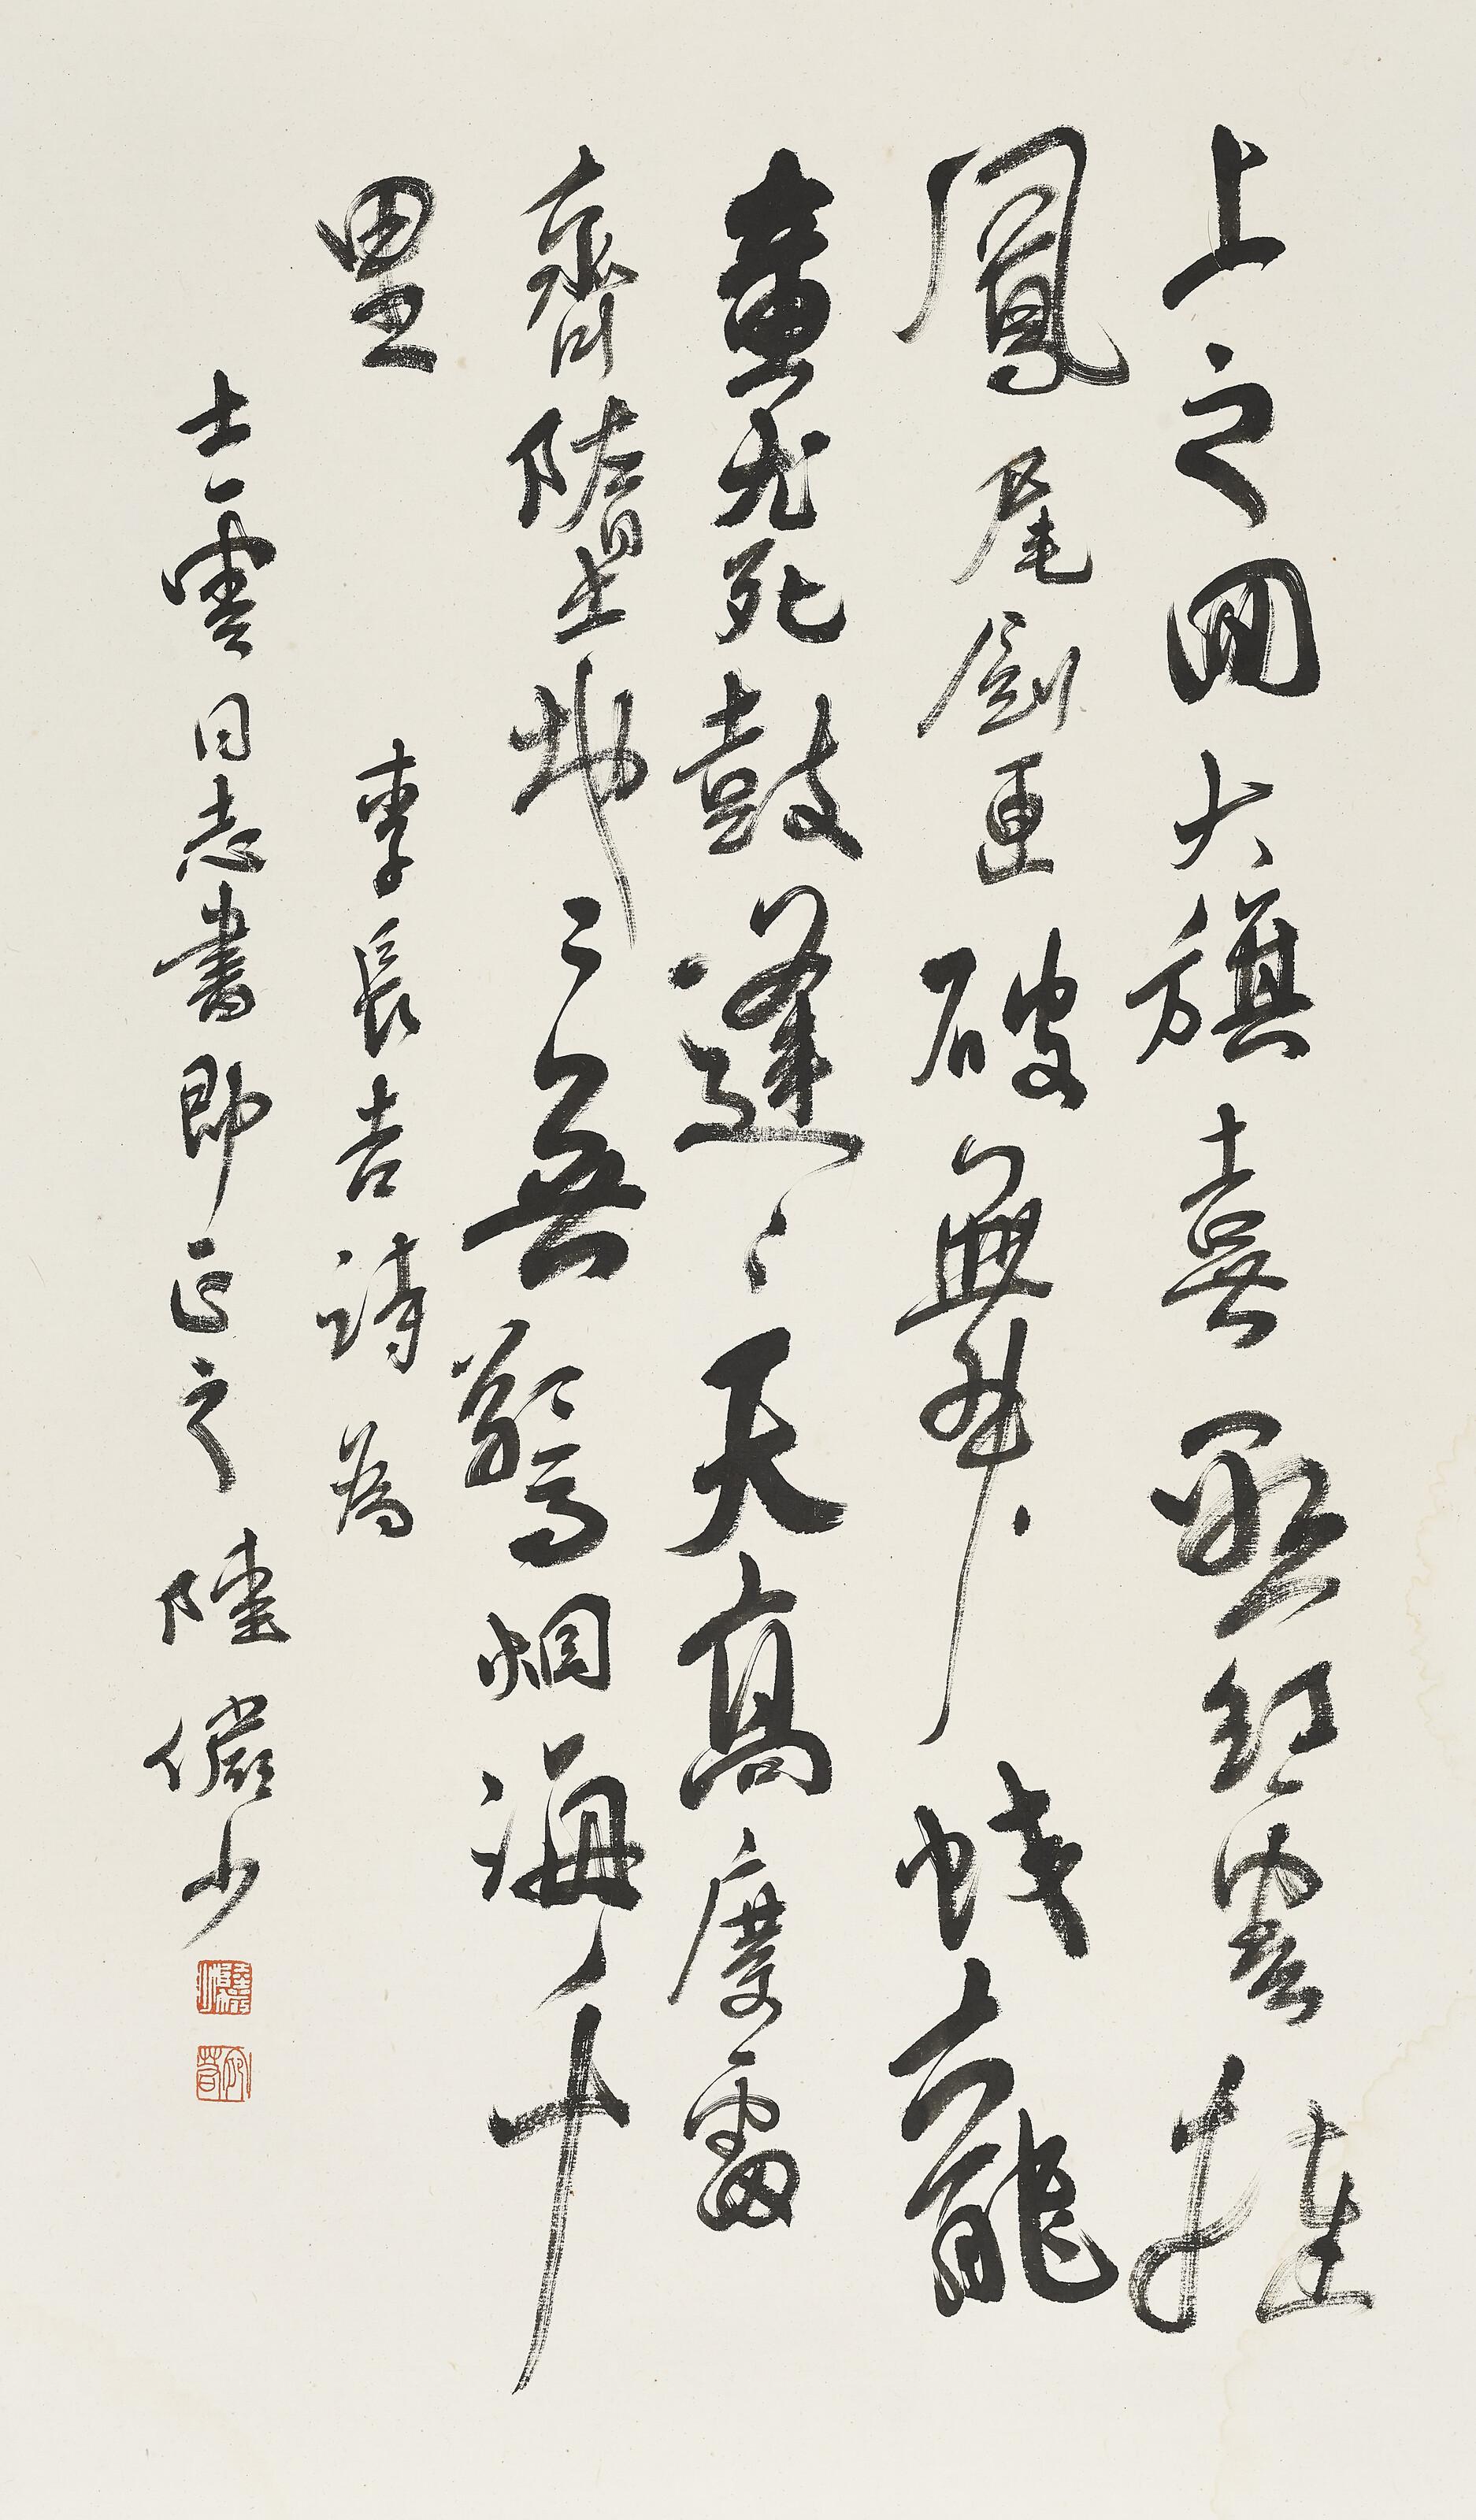 上之回大旗喜懸紅雲撻
鳳尾劍匣破舞蛟龍
蚩尤死鼓逢〻天高慶雷
齊墜地〻無驚烟海千
里
李長吉詩為
士雲同志書即正之 陸儼少